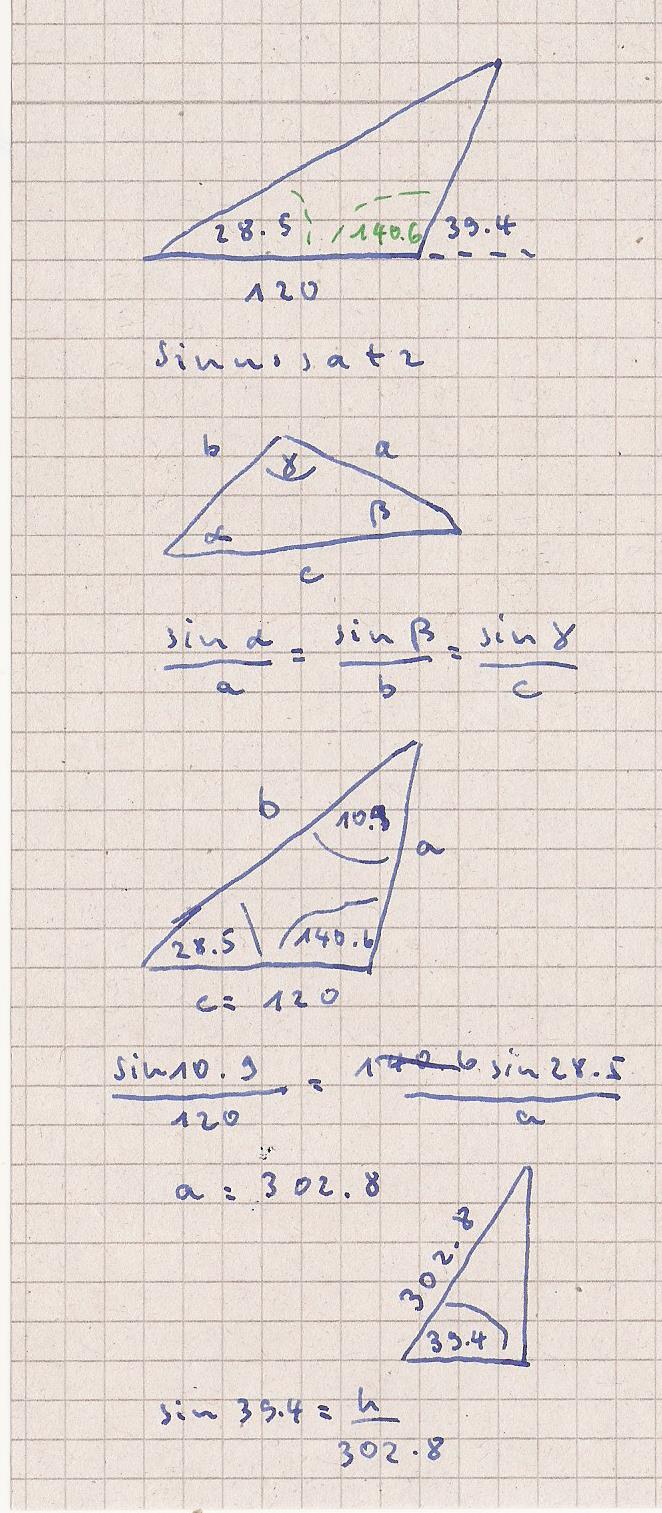 28.5 140.6 39.4
120
Sinussatz
b γ a
α β
c
sin α / a = sin β / b = sin γ / c
b 10.9 a
28.5 140.6
c = 120
sin 10.9 / 120 = sin 28.5 / a
a = 302.8
302.8
39.4
sin 39.4 = h / 302.8